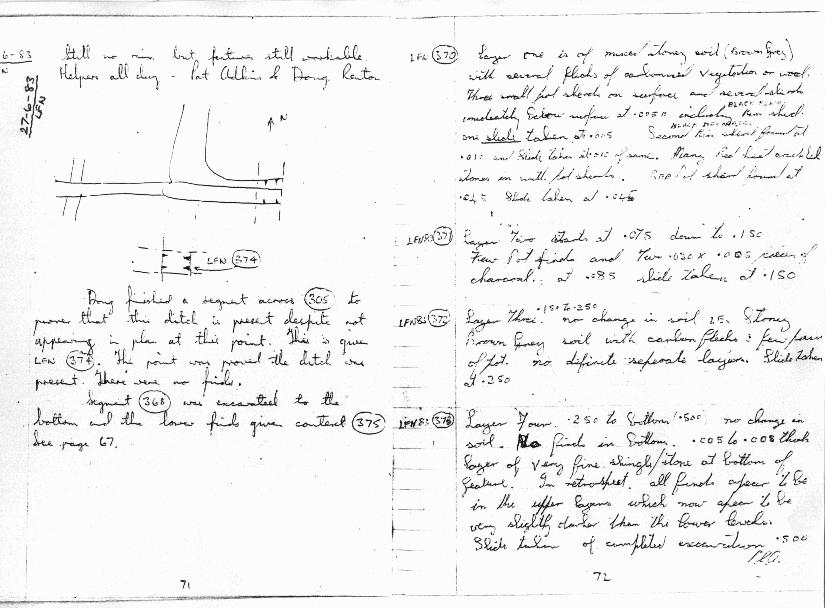 6-83
27-6-83
LFN
Still no rain but features still workable.
Helpers all day - Pat Atkins & Doug Renton
N
LFN (374)
Doug finished a segment across (305) to
prove that this ditch is present despite not
appearing in plan at this point. This is given
LFN (374). The point was proved the ditch was
present. There were no finds.
Segment (368) was excavated to the
bottom and the lower finds given context (375)
See page 67.
71
LFN (370) Layer one is of mixed stoney soil (Brown Grey)
with several flecks of carbonised vegetation or wood.
Three small pot sherds on surface and several sherds
immediately below surface at .005m including BLACK Rim sherd.
one slide taken at .005 Second Rim sherd found at
and slide taken at of same. Many Red heat crackled
stones in with pot sherds. Pot sherd found at
.045 Slide taken at .045
LFN83 (371) Layer Two starts at .075 down to .150
Few Pot finds and Two .030 x .005 pieces of
charcoal. at .085 slide taken at .150
LFN83 (372) Layer Three. .150 to .250 no change in soil IE. Stoney
Brown Grey soil with carbon flecks & few
of Pot. no definite seperate layers. Slide taken
at .250
LFN83 (373) Layer Four .250 to bottom (.500) no change in
soil. No finds in bottom. .005 to .008 thick
layer of very fine shingle/stone at bottom of
feature. In retrospect, all finds apear to be
in the upper layers which now apear to be
very slightly darker than the lower levels.
Slide taken of completed excavation .500
72